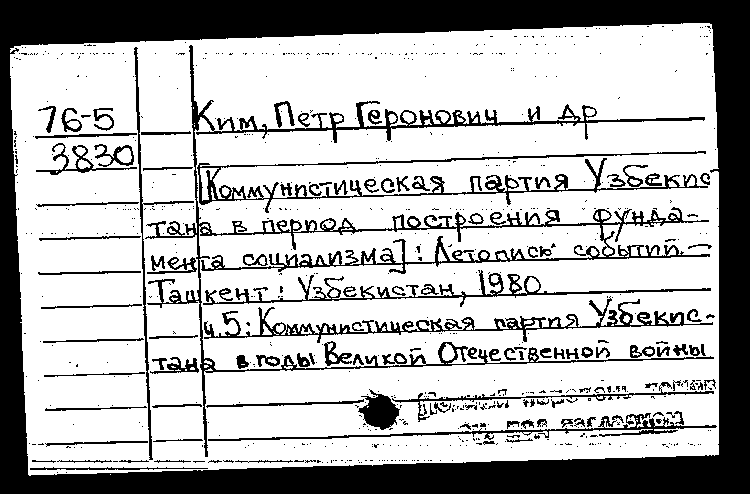 76-5 Ким, Петр Геронович и др
3830
[Коммунистическая партия Узбекис
тана в период построения фунда-
мента социализма] : Летопись событий. —
Ташкент : Узбекистан, 1980.
ч.5: Коммунистическая партия Узбекис-
тана в годы Великой Отечественной войны
Полный перечень томов
см. под заглавном